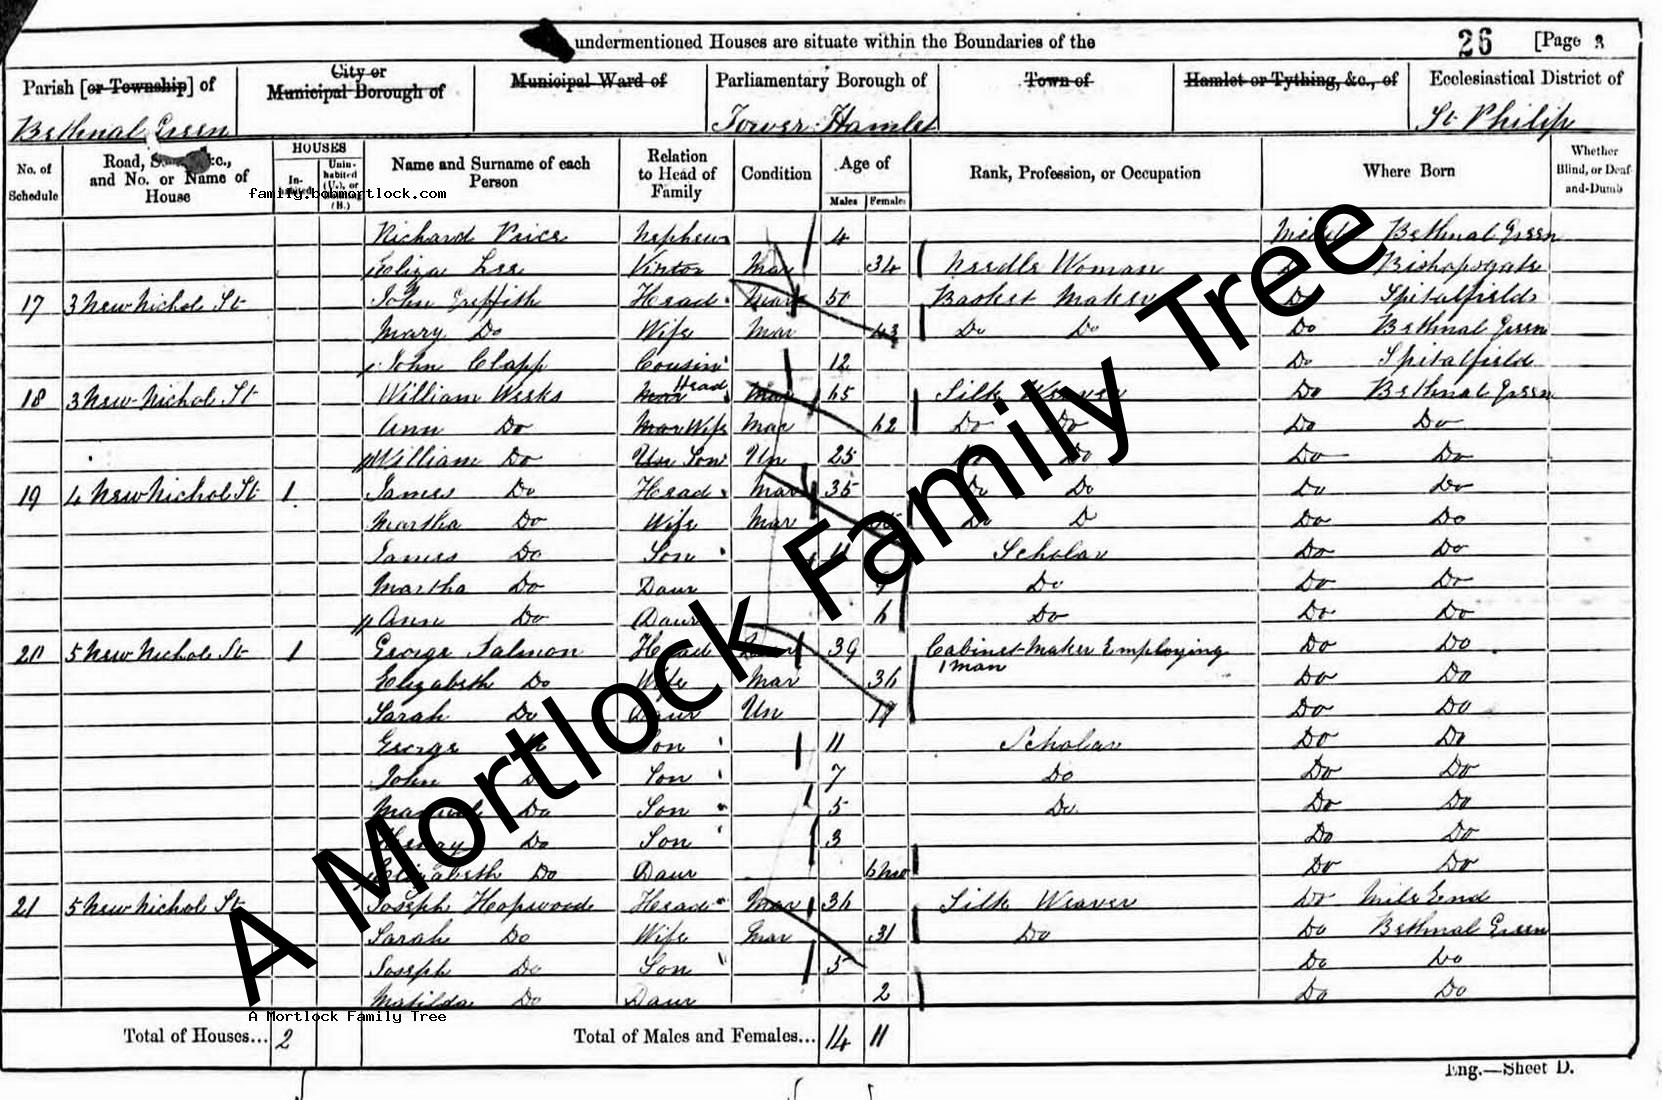 undermentioned Houses are situate within the Boundaries of the 26 [Page 3
Parish [or Township] of City or Municipal Borough of Municipal Ward of Parliamentary Borough of Town of Hamlet or Tything, &c., of Ecclesiastical District of
Bethnal Green Tower Hamlet St Philip
No. of Schedule Road, S &c., and No. or Name of House HOUSES Inhabited Uninhabited (U.), or Building (B.) Name and Surname of each Person Relation to Head of Family Condition Age of Males Females Rank, Profession, or Occupation Where Born Whether Blind, or Deaf-and-Dumb
family.bobmortlock.com
Richard Price Nephew 4 Bethnal Green
Eliza Lee Visitor Mar 34 Needle Woman Bishopsgate
17 3 New Nichol St John Griffith Head Mar 50 Basket Maker Do Spitalfields
Mary Do Wife Mar 43 Do Do Do Bethnal Green
John Clapp Cousin 12 Do Spitalfield
18 3 New Nichol St William Weeks Head Mar 65 Silk Weaver Do Bethnal Green
Ann Do Mar Wife Mar 62 Do Do Do Do
William Do Un Son Un 25 Do Do Do Do
19 4 New Nichol St 1 James Do Head Mar 35 Do Do Do Do
Martha Do Wife Mar 35 Do D Do Do
James Do Son 11 Scholar Do Do
Martha Do Daur 9 Do Do Do
Ann Do Daur 6 Do Do Do
20 5 New Nichol St 1 George Salmon Head Mar 39 Cabinet Maker Employing Do Do
1 man
Elizabeth Do Wife Mar 36 Do Do
Sarah Do Daur Un 17 Do Do
George Do Son 11 Scholar Do Do
John Do Son 7 Do Do Do
Do Son 5 Do Do Do
Henry Do Son 3 Do Do
Elizabeth Do Daur 6 mo Do Do
21 5 New Nichol St Joseph Hopwood Head Mar 36 Silk Weaver Do Mile End
Sarah Do Wife Mar 31 Do Do Bethnal Green
Joseph Do Son 5 Do Do
Matilda Do Daur 2 Do Do
A Mortlock Family Tree
A Mortlock Family Tree
Total of Houses... 2 Total of Males and Females... 14 11
Eng.—Sheet D.